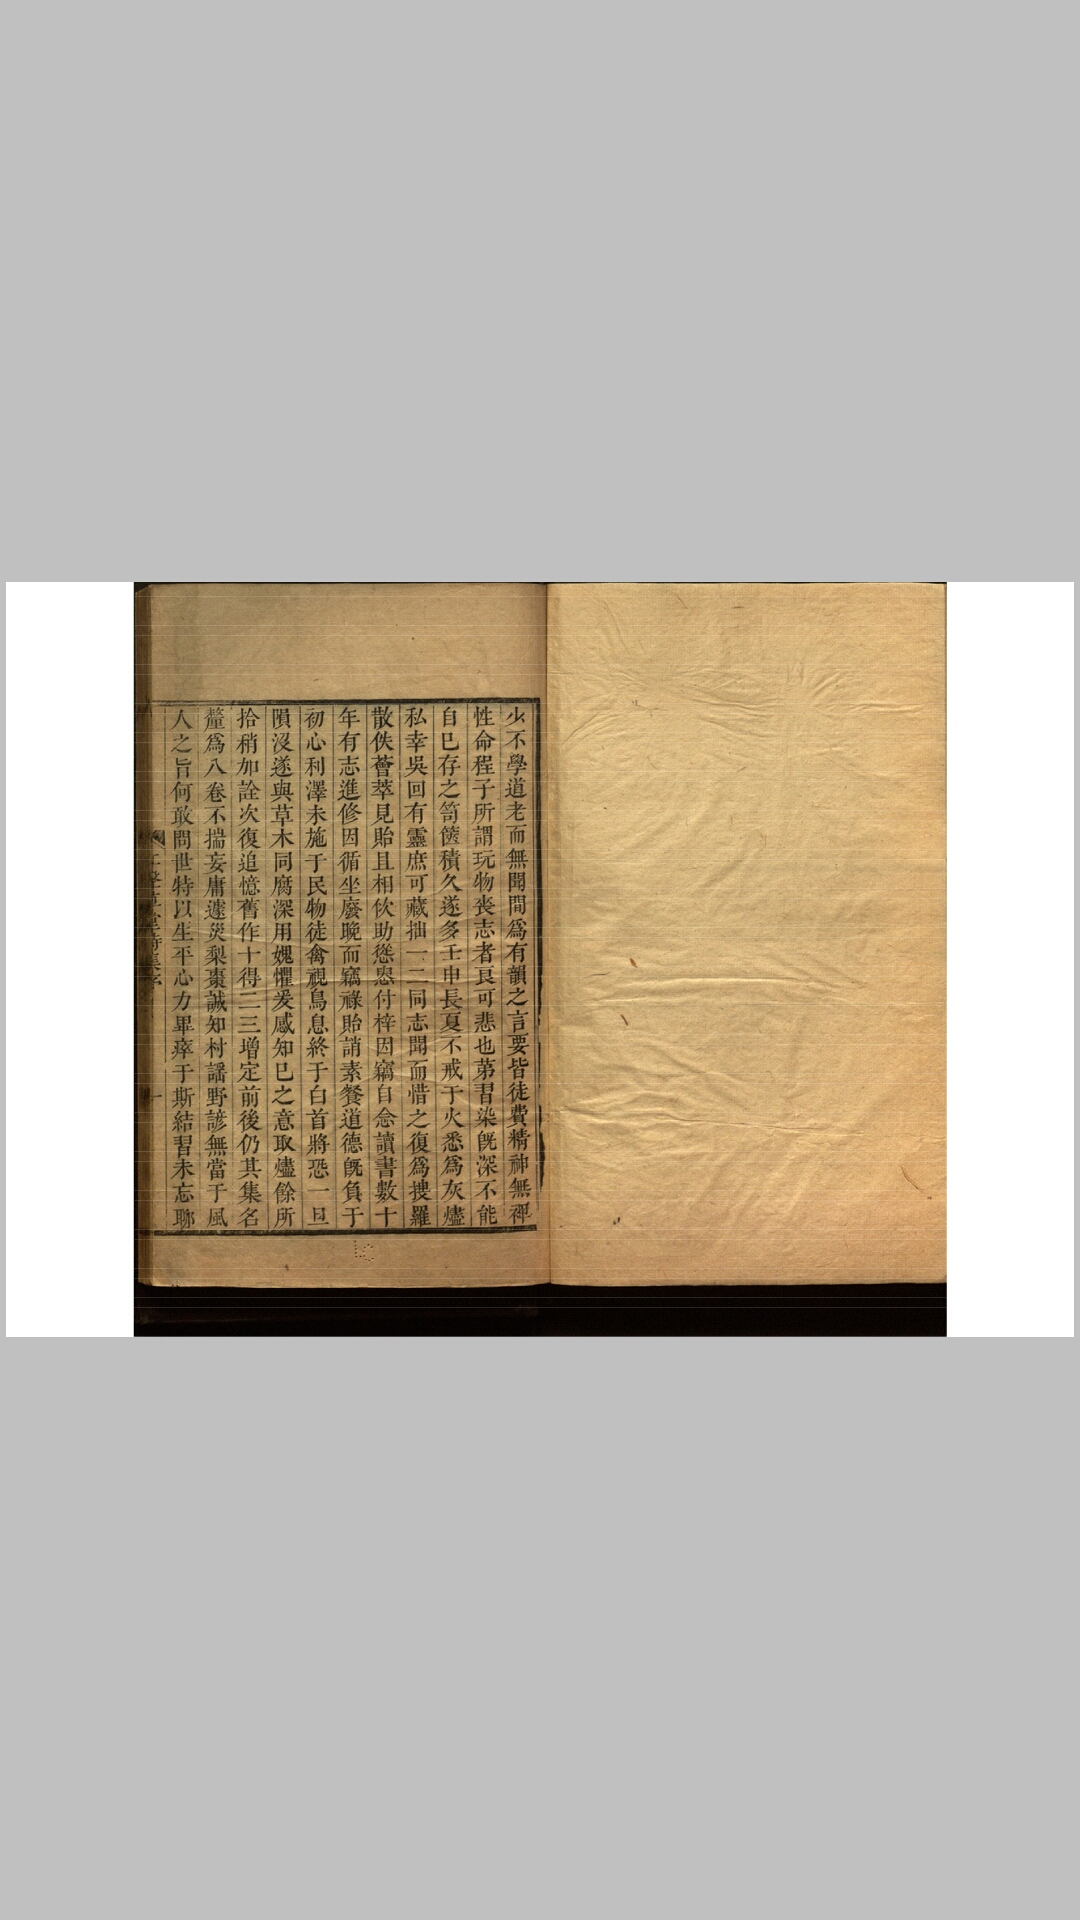 少不學道老而無聞間爲有韻之言要皆徒費精神無裨
性命程子所謂玩物喪志者良可悲也第習染旣深不能
自已存之笥篋積久遂多壬申長夏不戒于火悉爲灰燼
私幸吳回有靈庶可藏拙一二同志聞而惜之復爲搜羅
散佚薈萃見貽且相佽助慫恿付梓因竊自念讀書數十
年有志進修因循坐廢晚而竊祿貽誚素餐道德旣負于
初心利澤未施于民物徒禽視鳥息終于白首將恐一旦
隕沒遂與草木同腐深用媿懼爰感知已之意取燼餘所
拾稍加詮次復追憶舊作十得二三增定前後仍其集名
釐爲八卷不揣妄庸遽災梨棗誠知村謡野諺無當于風
人之旨何敢問世特以生平心力畢瘁于斯結習未忘聊
一